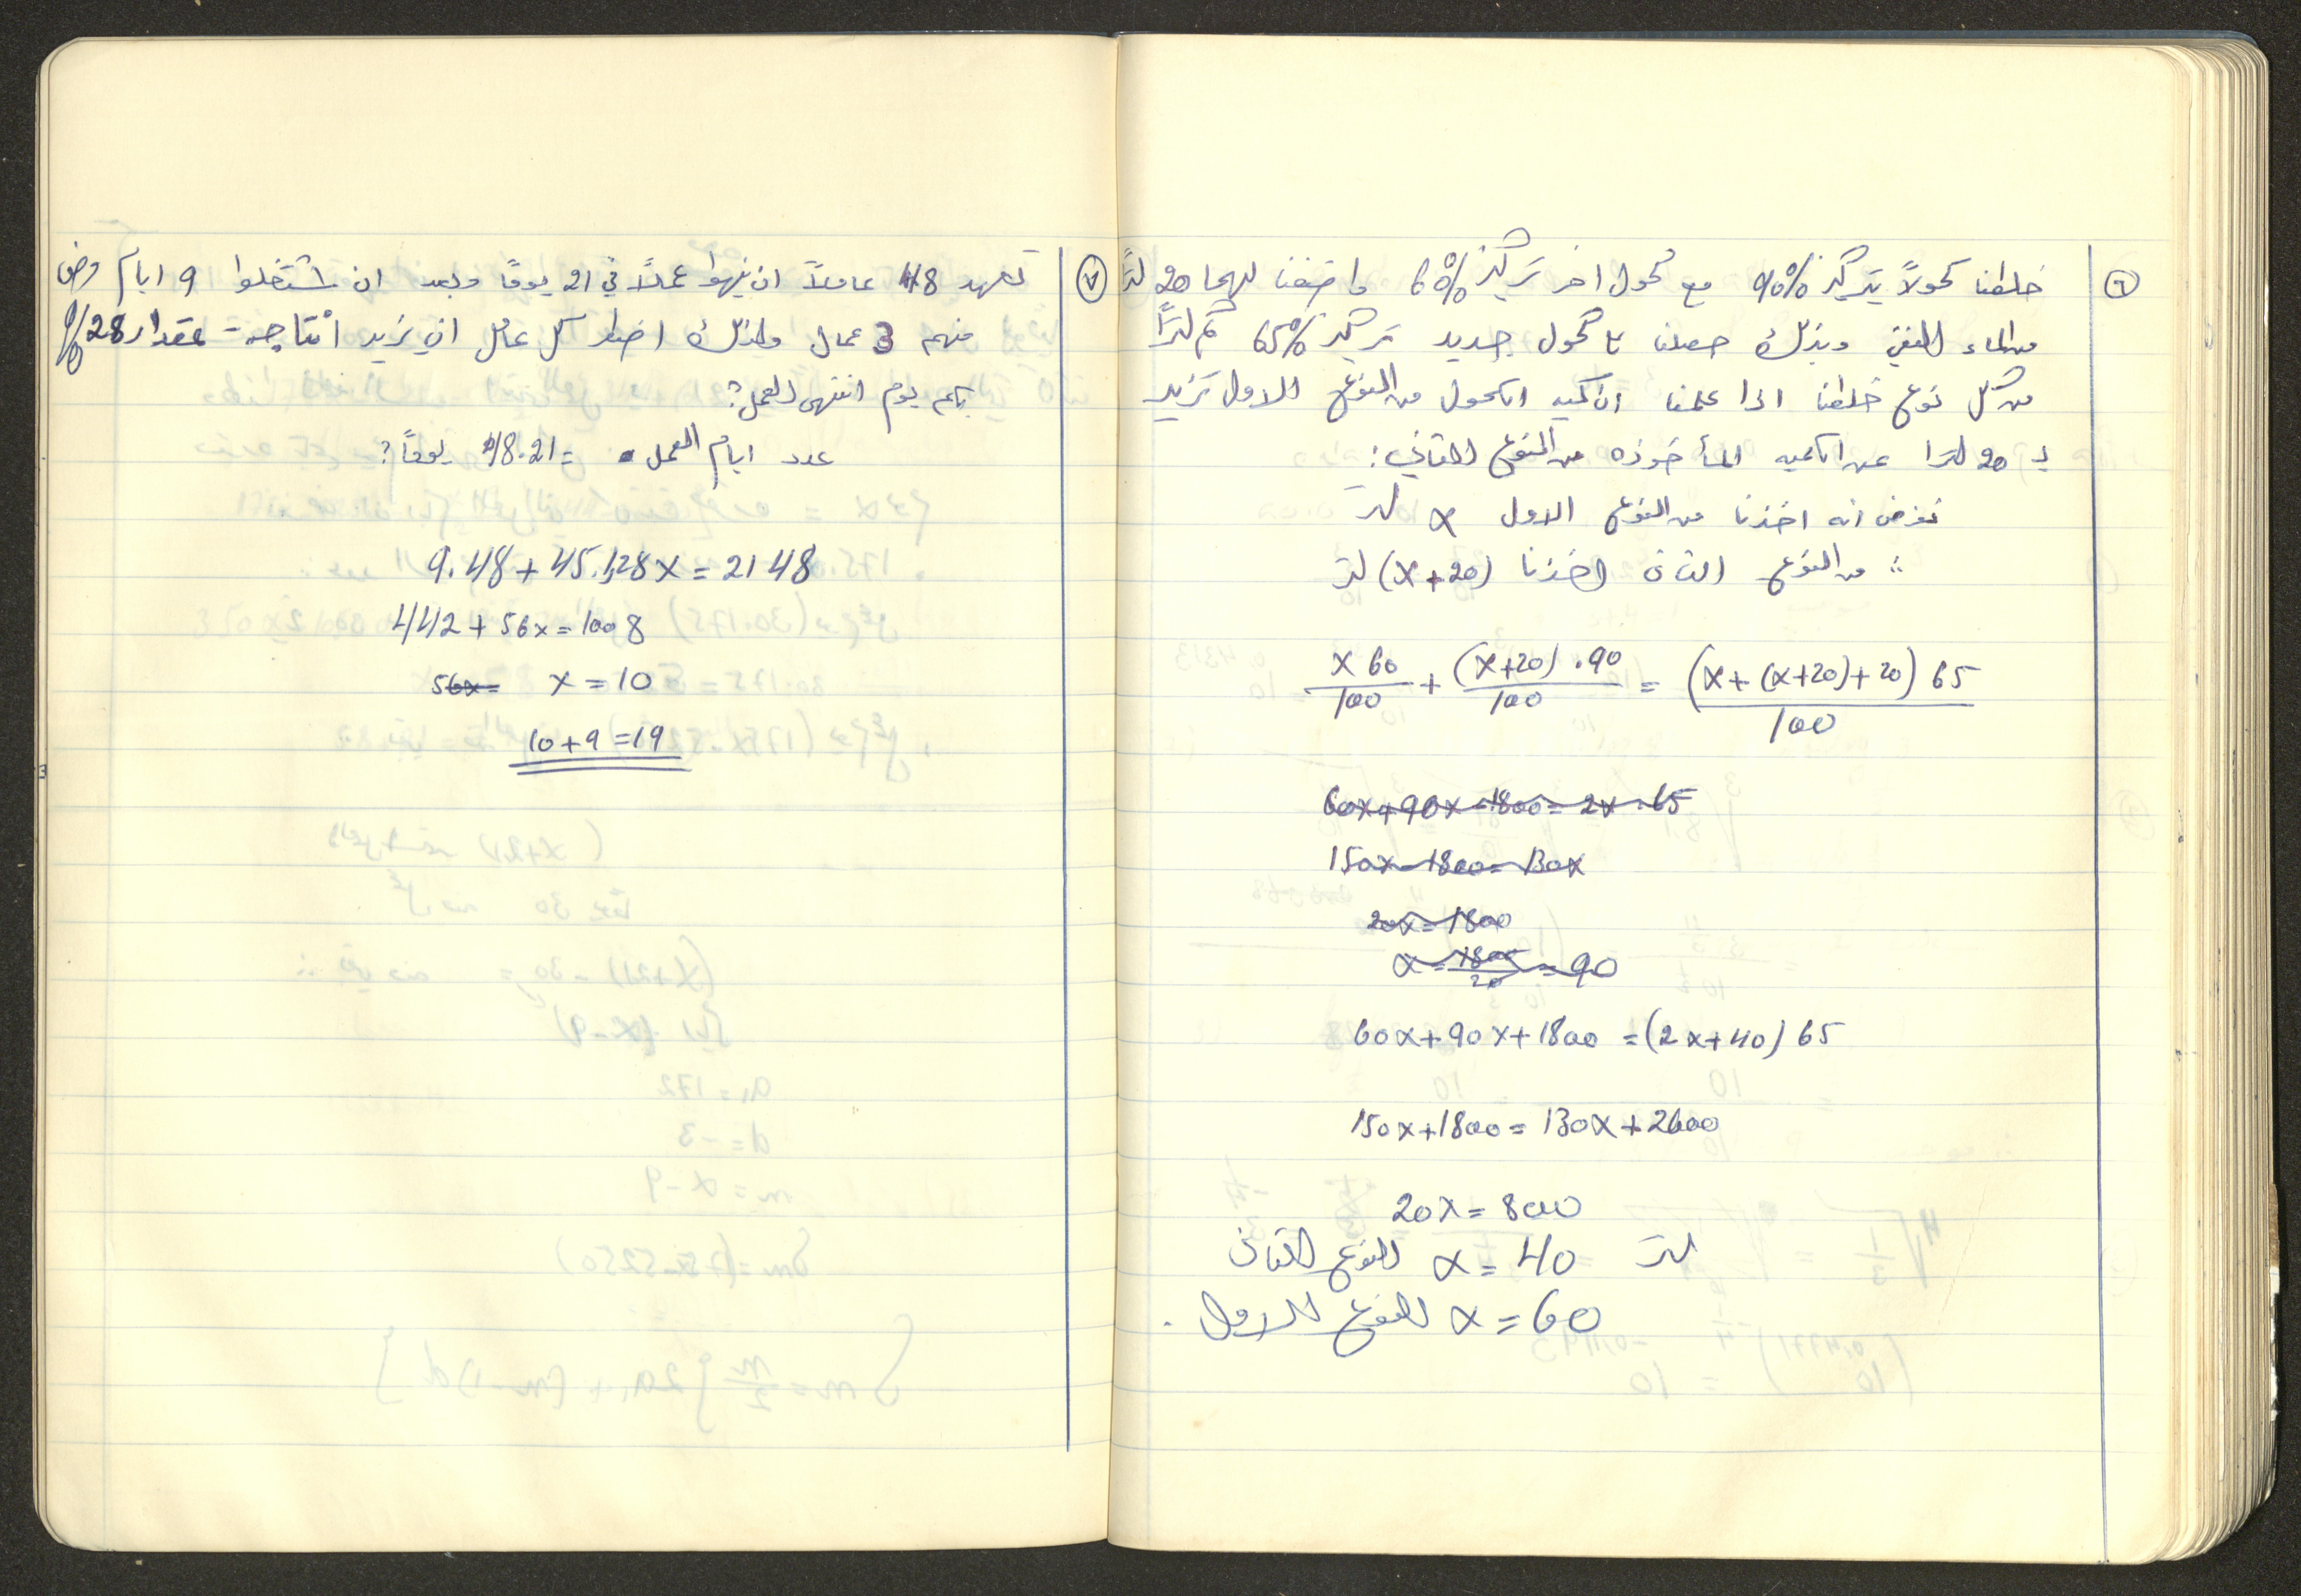 ٦ خلطنا كحولاً بتركيز 90% مع كحول اخر تركيز 60% واضفنا لهما 20 لترًا
من الماء النقي وبذلك حصلنا كحول جديد تركيز 65% كم لترًا
من كل نوع خلطنا اذا علمنا ان كمية الكحول من النوع الاول تزيد
بـ 20 لترا عن الكميه المأخوذه من النوع الثاني:
نفرض انه اخذنا من النوع الاول x لتر
∴ من النوع الثاني اخذنا (x+20) لتر
x 60/100 + (x+20).90/100 = (x+(x+20)+20) 65/100
60x+90x-1800=2x.65
150x-1800=130x
20x=1800
x=1800/20=90
60x+90x+1800=(2x+40) 65
150x+1800=130x+2600
20x=800
لتر x=40 للنوع الثاني
x=60 للنوع الاول.
٧ تعهد 48 عاملاً ان ينهوا عملاً في 21 يومًا وبعد ان اشتغلوا 9 ايام مرض
منهم 3 عمال ولذلك اضطر كل عامل ان يزيد انتاجه بمقدار 28%
بكم يوم انتهى العمل؟
عدد ايام العمل = 48.21 يومًا؟
9.48+45.1,28x=21 48
442+56x=1008
56x= x=10
10+9=19